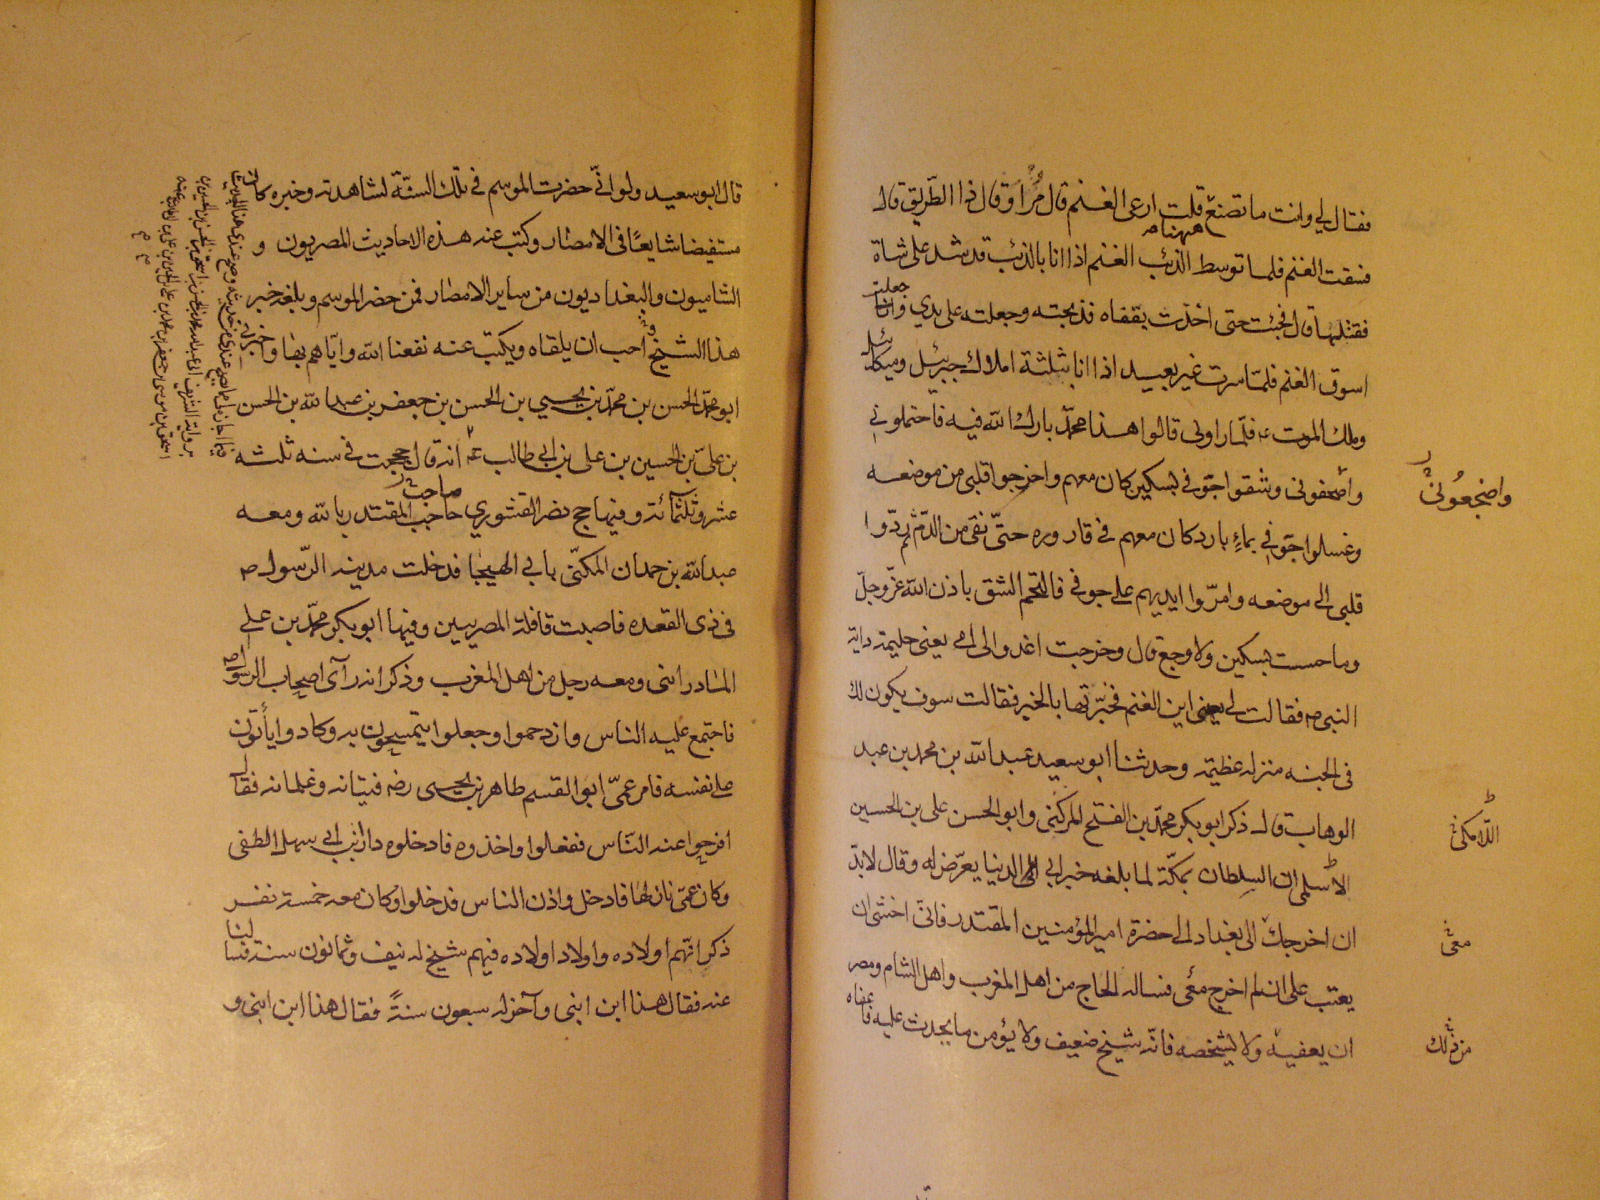 فقال لي وانت ما تصنع قلت ارعى الغنم قال مُرّ او قال ذا الطّريق قال
فسقت الغنم فلما توسط الذئب الغنم اذا انا بالذئب قد شد على شاة
فقتلها قال فجئت حتى اخذت بقفاه فذبحته وجعلته على يدي و
جعلت
اسوق الغنم فلمّا سرت غير بعيد اذا انا بثلثة املاك جبرئيل وميكائيل
وملك الموت ع فلمّا راوني قالوا هذا محمّد بارك الله فيه فاحتملوني
واضجعوني وشقوا جوفي بسكين كان معهم واخرجوا قلبي من موضعه
واضجعُونی
وغسلوا جوفي بماءٍ بارد كان معهم في قاروره حتّى نقى من الدّم ثم ردّوا
قلبي الى موضعه وامرّوا ايديهم على جوفي فالتحم الشق باذن الله عزّ وجلّ
وما حسست بسكين ولا وجع قال وخرجت اغدو الى امي يعني حليمة داية
النبي ص فقالت لي يعني اين الغنم فخبّرتها بالخبر فقالت سوف يكون لك
في الجنه منزله عظيمه وحدثنا ابو سعيد عبد الله بن محمد بن عبد
الوهاب قال ذكر ابو بكر محمّد بن الفتح المركنى وابو الحسن على بن الحسين
الاسلمى ان السلطان بمكّة لما بلغه خبر ابي الدنيا يعرّض له وقال لابدّ
ان اخرجك الى بغداد الى حضرة امير المؤمنين المقتدر فانى اخشى ان
معى
يعتب على ان لم اخرج معى فساله الحاج من اهل المغرب واهل الشام ومصر
ان يعفيه ولا يشخصه فانّه شيخ ضعيف ولا يؤمن ما يحدث عليه فاعفاه
من ذلك
قال ابو سعيد ولو انّي حضرت الموسم في تلك السنّة لشاهدته وخبره كان
مستفيضا شايعًا في الامصار وكتب عنه هذه الاحاديث المصريون و
الشاميون والبغداديون من ساير الامصار فمن حضر الموسم وبلغه خبر
هذا الشيخ احب ان يلقاه ويكتب عنه نفعنا الله وايّاهم بها واخبرني
ابو محمّد الحسن بن محمّد بن يحيى بن الحسن بن جعفر بن عبد الله بن الحسن
بن علىّ بن الحسين بن على بن ابى طالب ع انه قال حججت في سنه ثلثه
عشر وثلثمائة وفيها حج نصر القشورى حاجب المقتدر بالله ومعه
صاحب
عبد الله بن حمدان المكنّى بابي الهيجا فدخلت مدينه الرّسول ص
في ذى القعده فاصبت قافلة المصريين وفيها ابو بكر محمّد بن على
المادرانى ومعه رجل من اهل المغرب وذكر انه رآى اصحاب الرسول ص
فاجتمع عليه الناس وازدحموا وجعلوا يتمسحون به وكادوا يأتون
على نفسه فامر عمىّ ابو القسم طاهر بن يحيى رضه فتيانه وغلمانه فقال
افرجوا عنه النّاس ففعلوا واخذوه فادخلوه دار ابن ابي سهل الطفى
وكان عمى نازلها فادخل واذن الناس فدخلوا وكان معه خمسة نفر
ذكر انّهم اولاده واولاد اولاده فيهم شيخ له نيف وثمانون سنة فسالنا
عنه فقال هذا ابن ابنى وآخر له سبعون سنةً فقال هذا ابن ابنى و